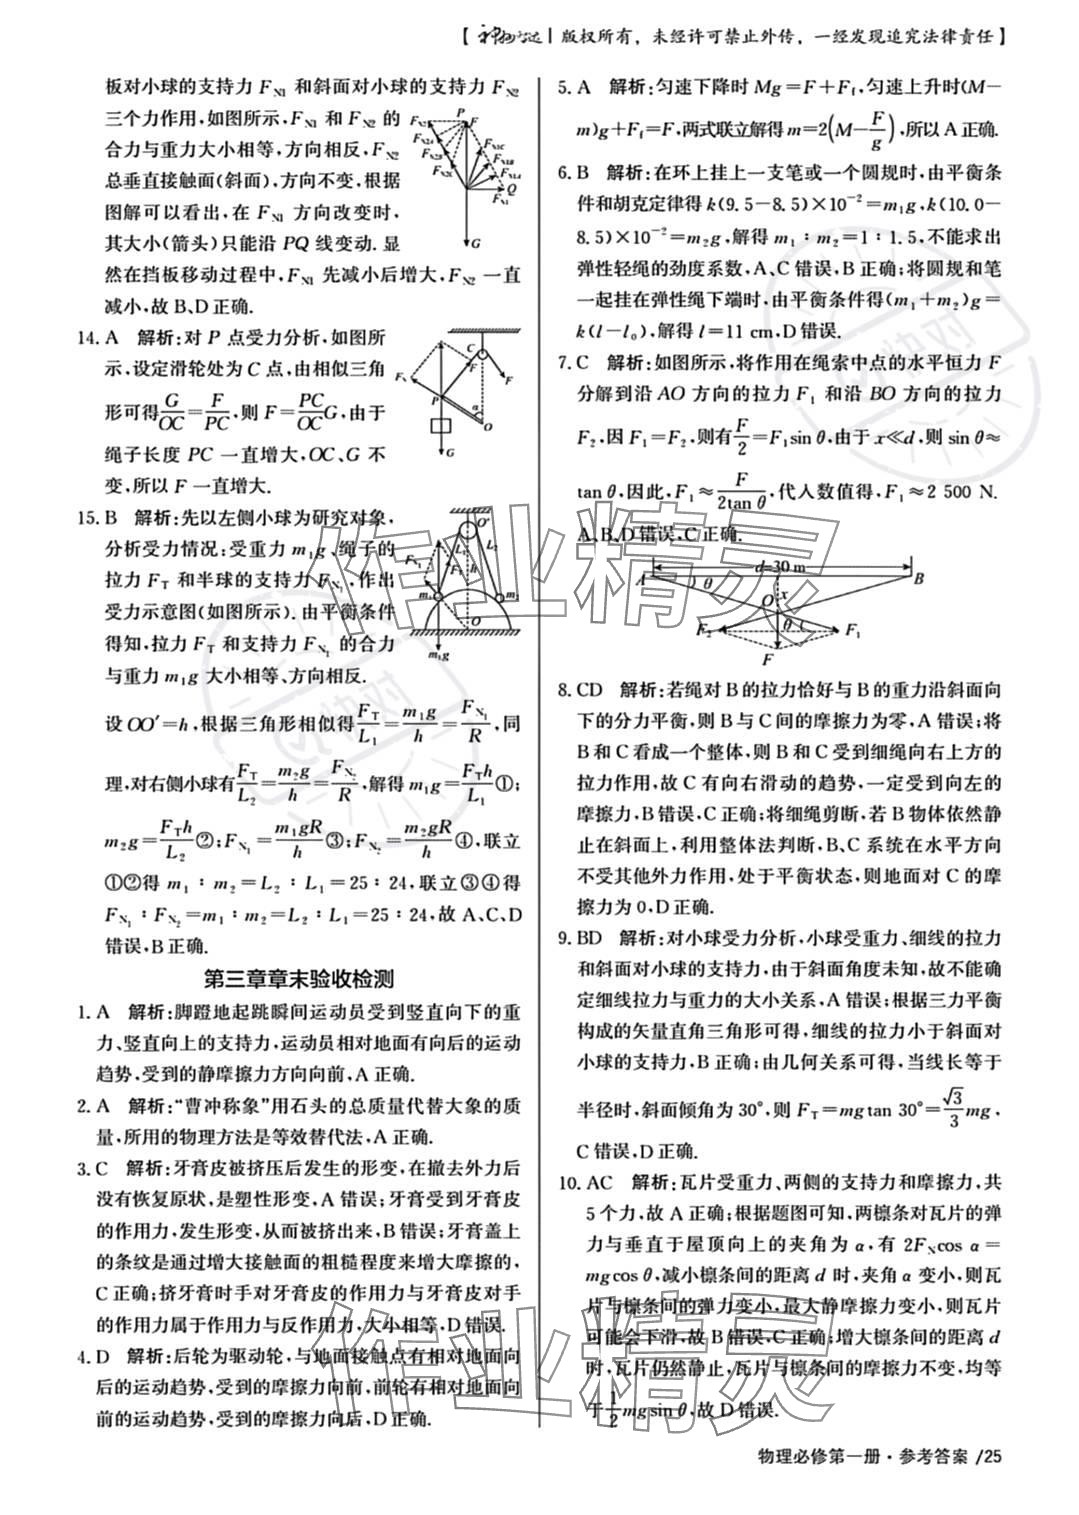 【神州文达 | 版权所有，未经许可禁止外传，一经发现追究法律责任】
板对小球的支持力 F_N1 和斜面对小球的支持力 F_N2
三个力作用,如图所示,F_N1 和 F_N2 的
合力与重力大小相等,方向相反,F_N2
总垂直接触面(斜面),方向不变,根据
图解可以看出,在 F_N1 方向改变时,
其大小(箭头)只能沿 PQ 线变动.显
然在挡板移动过程中,F_N1 先减小后增大,F_N2 一直
减小,故 B、D 正确.
14. A 解析:对 P 点受力分析,如图所
示,设定滑轮处为 C 点,由相似三角
形可得 G/OC = F/PC,则 F = PC/OC G,由于
绳子长度 PC 一直增大,OC、G 不
变,所以 F 一直增大.
15. B 解析:先以左侧小球为研究对象,
分析受力情况:受重力 m₁g、绳子的
拉力 F_T 和半球的支持力 F_N₁,作出
受力示意图(如图所示).由平衡条件
得知,拉力 F_T 和支持力 F_N₁ 的合力
与重力 m₁g 大小相等、方向相反.
设 OO′=h,根据三角形相似得 F_T/L₁ = m₁g/h = F_N₁/R,同
理,对右侧小球有 F_T/L₂ = m₂g/h = F_N₂/R,解得 m₁g = F_Th/L₁ ①;
m₂g = F_Th/L₂ ②;F_N₁ = m₁gR/h ③;F_N₂ = m₂gR/h ④,联立
①②得 m₁ : m₂ = L₂ : L₁ = 25 : 24,联立③④得
F_N₁ : F_N₂ = m₁ : m₂ = L₂ : L₁ = 25 : 24,故 A、C、D
错误,B 正确.
第三章章末验收检测
1. A 解析:脚蹬地起跳瞬间运动员受到竖直向下的重
力、竖直向上的支持力,运动员相对地面有向后的运动
趋势,受到的静摩擦力方向向前,A 正确.
2. A 解析:“曹冲称象”用石头的总质量代替大象的质
量,所用的物理方法是等效替代法,A 正确.
3. C 解析:牙膏皮被挤压后发生的形变,在撤去外力后
没有恢复原状,是塑性形变,A 错误;牙膏受到牙膏皮
的作用力,发生形变,从而被挤出来,B 错误;牙膏盖上
的条纹是通过增大接触面的粗糙程度来增大摩擦的,
C 正确;挤牙膏时手对牙膏皮的作用力与牙膏皮对手
的作用力属于作用力与反作用力,大小相等,D 错误.
4. D 解析:后轮为驱动轮,与地面接触点有相对地面向
后的运动趋势,受到的摩擦力向前,前轮有相对地面向
前的运动趋势,受到的摩擦力向后,D 正确.
5. A 解析:匀速下降时 Mg=F+F_f,匀速上升时(M−
m)g+F_f=F,两式联立解得 m=2(M−F/g),所以 A 正确.
6. B 解析:在环上挂上一支笔或一个圆规时,由平衡条
件和胡克定律得 k(9.5−8.5)×10⁻²=m₁g,k(10.0−
8.5)×10⁻²=m₂g,解得 m₁ : m₂=1 : 1.5,不能求出
弹性轻绳的劲度系数,A、C 错误,B 正确;将圆规和笔
一起挂在弹性绳下端时,由平衡条件得(m₁+m₂)g=
k(l−l₀),解得 l=11 cm,D 错误.
7. C 解析:如图所示,将作用在绳索中点的水平恒力 F
分解到沿 AO 方向的拉力 F₁ 和沿 BO 方向的拉力
F₂,因 F₁=F₂,则有 F/2=F₁sin θ,由于 x≪d,则 sin θ≈
tan θ,因此,F₁≈F/2tan θ,代入数值得,F₁≈2 500 N.
A、B、D 错误,C 正确.
d=30 m
A θ B
O x
F₂ θ F₁
F
8. CD 解析:若绳对 B 的拉力恰好与 B 的重力沿斜面向
下的分力平衡,则 B 与 C 间的摩擦力为零,A 错误;将
B 和 C 看成一个整体,则 B 和 C 受到细绳向右上方的
拉力作用,故 C 有向右滑动的趋势,一定受到向左的
摩擦力,B 错误,C 正确;将细绳剪断,若 B 物体依然静
止在斜面上,利用整体法判断,B、C 系统在水平方向
不受其他外力作用,处于平衡状态,则地面对 C 的摩
擦力为 0,D 正确.
9. BD 解析:对小球受力分析,小球受重力、细线的拉力
和斜面对小球的支持力,由于斜面角度未知,故不能确
定细线拉力与重力的大小关系,A 错误;根据三力平衡
构成的矢量直角三角形可得,细线的拉力小于斜面对
小球的支持力,B 正确;由几何关系可得,当线长等于
半径时,斜面倾角为 30°,则 F_T=mgtan 30°=√3/3 mg,
C 错误,D 正确.
10. AC 解析:瓦片受重力、两侧的支持力和摩擦力,共
5 个力,故 A 正确;根据题图可知,两檩条对瓦片的弹
力与垂直于屋顶向上的夹角为 α,有 2F_Ncos α=
mgcos θ,减小檩条间的距离 d 时,夹角 α 变小,则瓦
片与檩条间的弹力变小,最大静摩擦力变小,则瓦片
可能会下滑,故 B 错误,C 正确;增大檩条间的距离 d
时,瓦片仍然静止,瓦片与檩条间的摩擦力不变,均等
于 1/2 mgsin θ,故 D 错误.
物理必修第一册·参考答案 /25
作业精灵
作业精灵